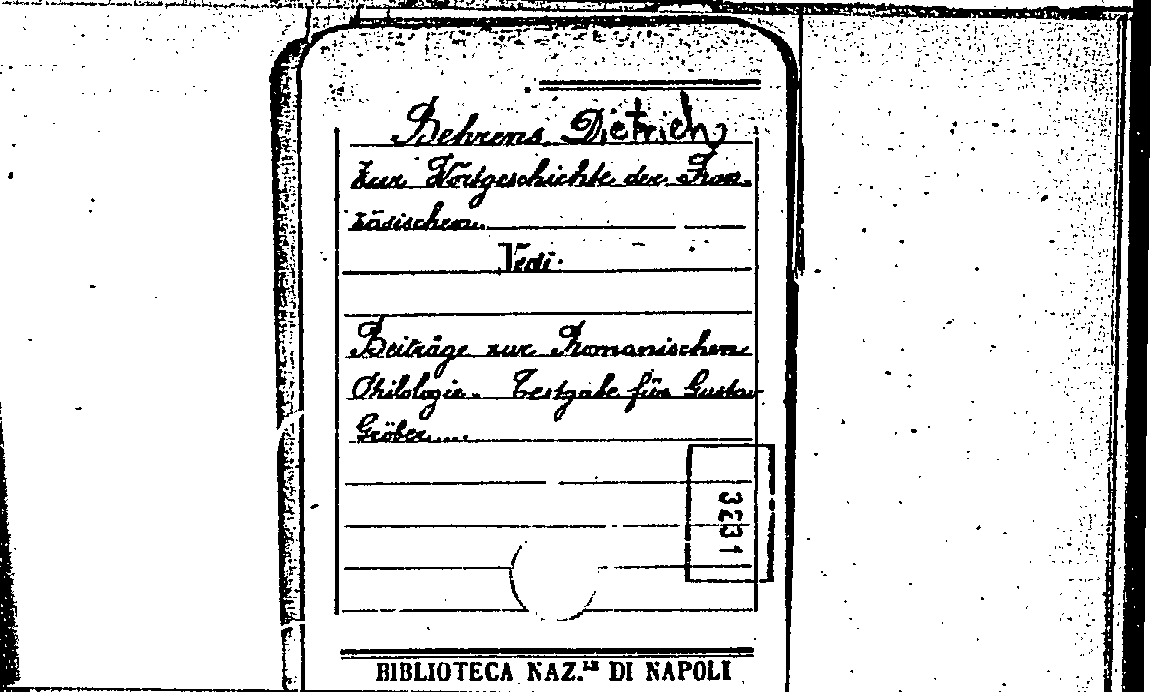 Behrens Dietrich
Zur Wortgeschichte der Fran-
zösischen.
Vedi:
Beiträge zur Romanischen
Philologie. Festgabe für Gustav
Gröber....
3231
BIBLIOTECA NAZ.LE DI NAPOLI